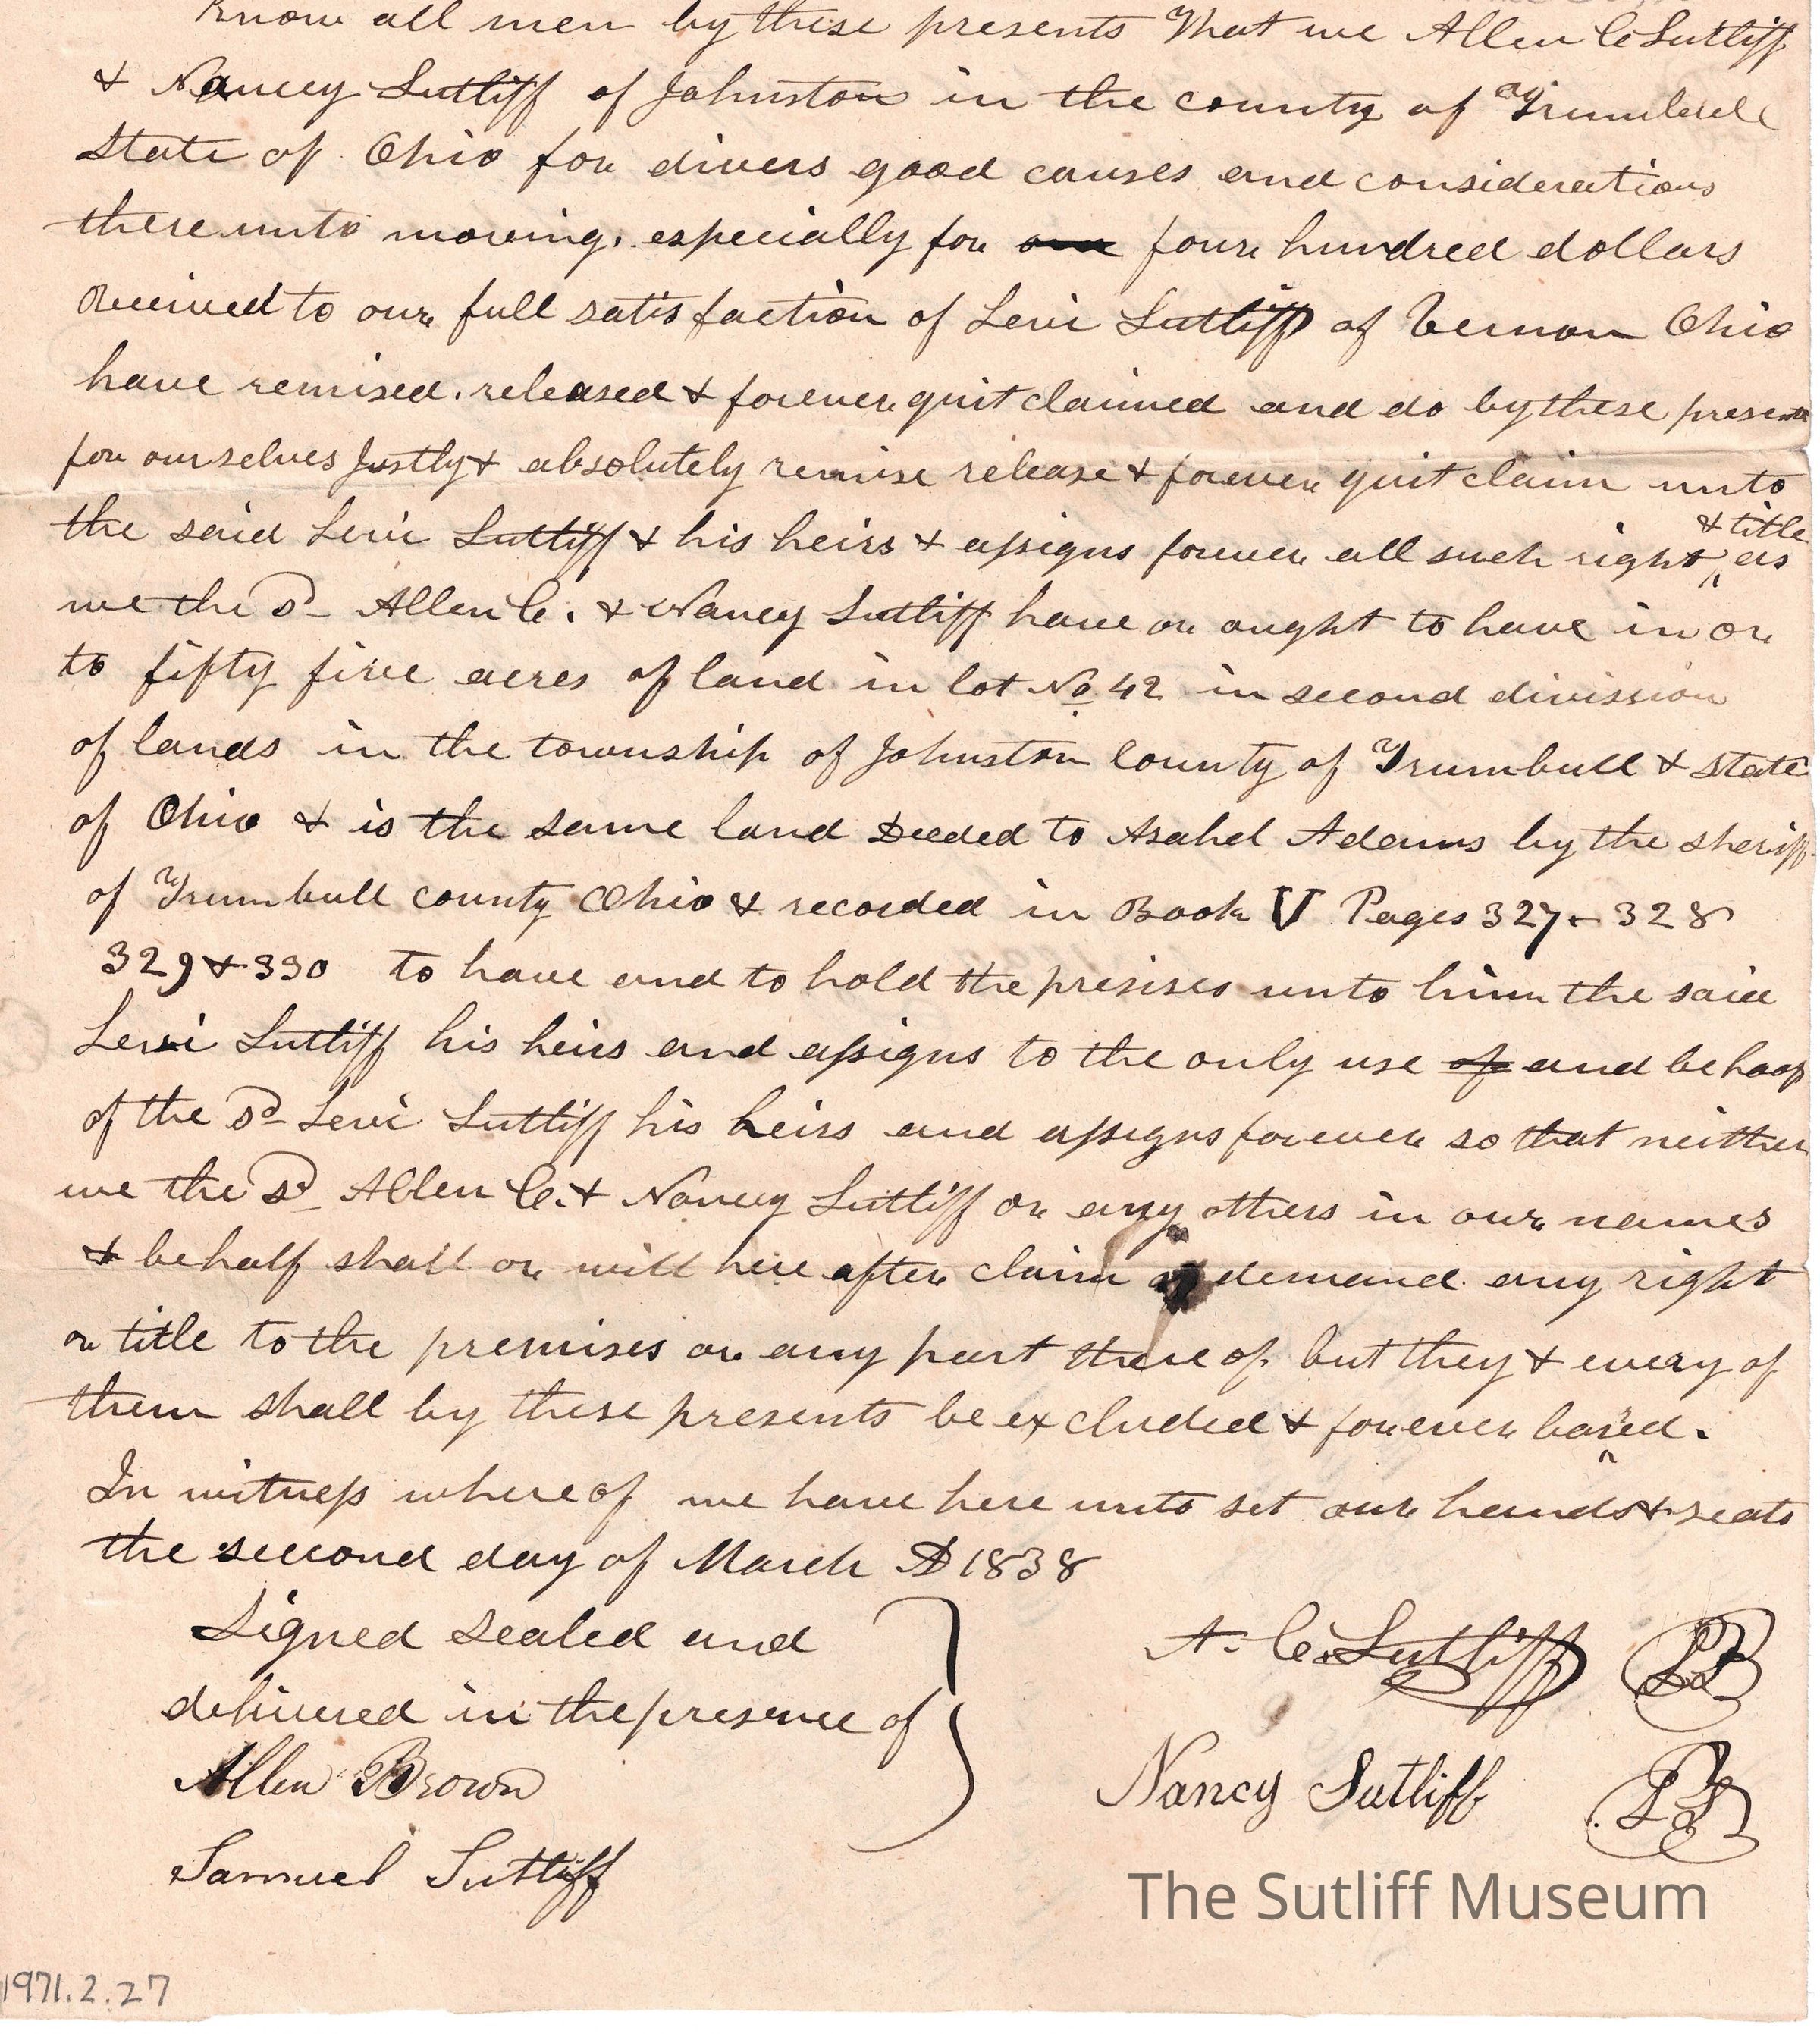 Know all men by these presents That we Allen C Sutliff
& Nancy Sutliff of Johnston in the county of Trumbull
State of Ohio for divers good causes and considerations
thereunto moving, especially for one four hundred dollars
Received to our full satisfaction of Levi Sutliff of Vernon Ohio
have remised, released & forever quit claimed and do by these presents
for ourselves Justly & absolutely remise release & forever quit claim unto
the said Levi Sutliff & his heirs & assigns forever all such right & title as
we the sd Allen C. & Nancy Sutliff have or ought to have in or
to fifty five acres of land in lot No 42 in second division
of lands in the township of Johnston County of Trumbull & State
of Ohio & is the same land Deeded to Asahel Adams by the sheriff
of Trumbull county Ohio & recorded in Book V Pages 327 - 328
329 & 330 to have and to hold the presises unto him the said
Levi Sutliff his heirs and assigns to the only use of and behoof
of the sd Levi Sutliff his heirs and assigns forever so that neither
we the sd Allen C. & Nancy Sutliff or any others in our names
& behalf shall or will here after claim or demand any right
or title to the premises or any part there of but they & every of
them shall by these presents be excluded & forever barred.
In witness where of we have here unto set our hands & seals
the second day of March AD 1838
Signed sealed and
delivered in the presence of
A. C. Sutliff LS
Allen Brown
Nancy Sutliff LS
Samuel Sutliff
The Sutliff Museum
1971.2.27